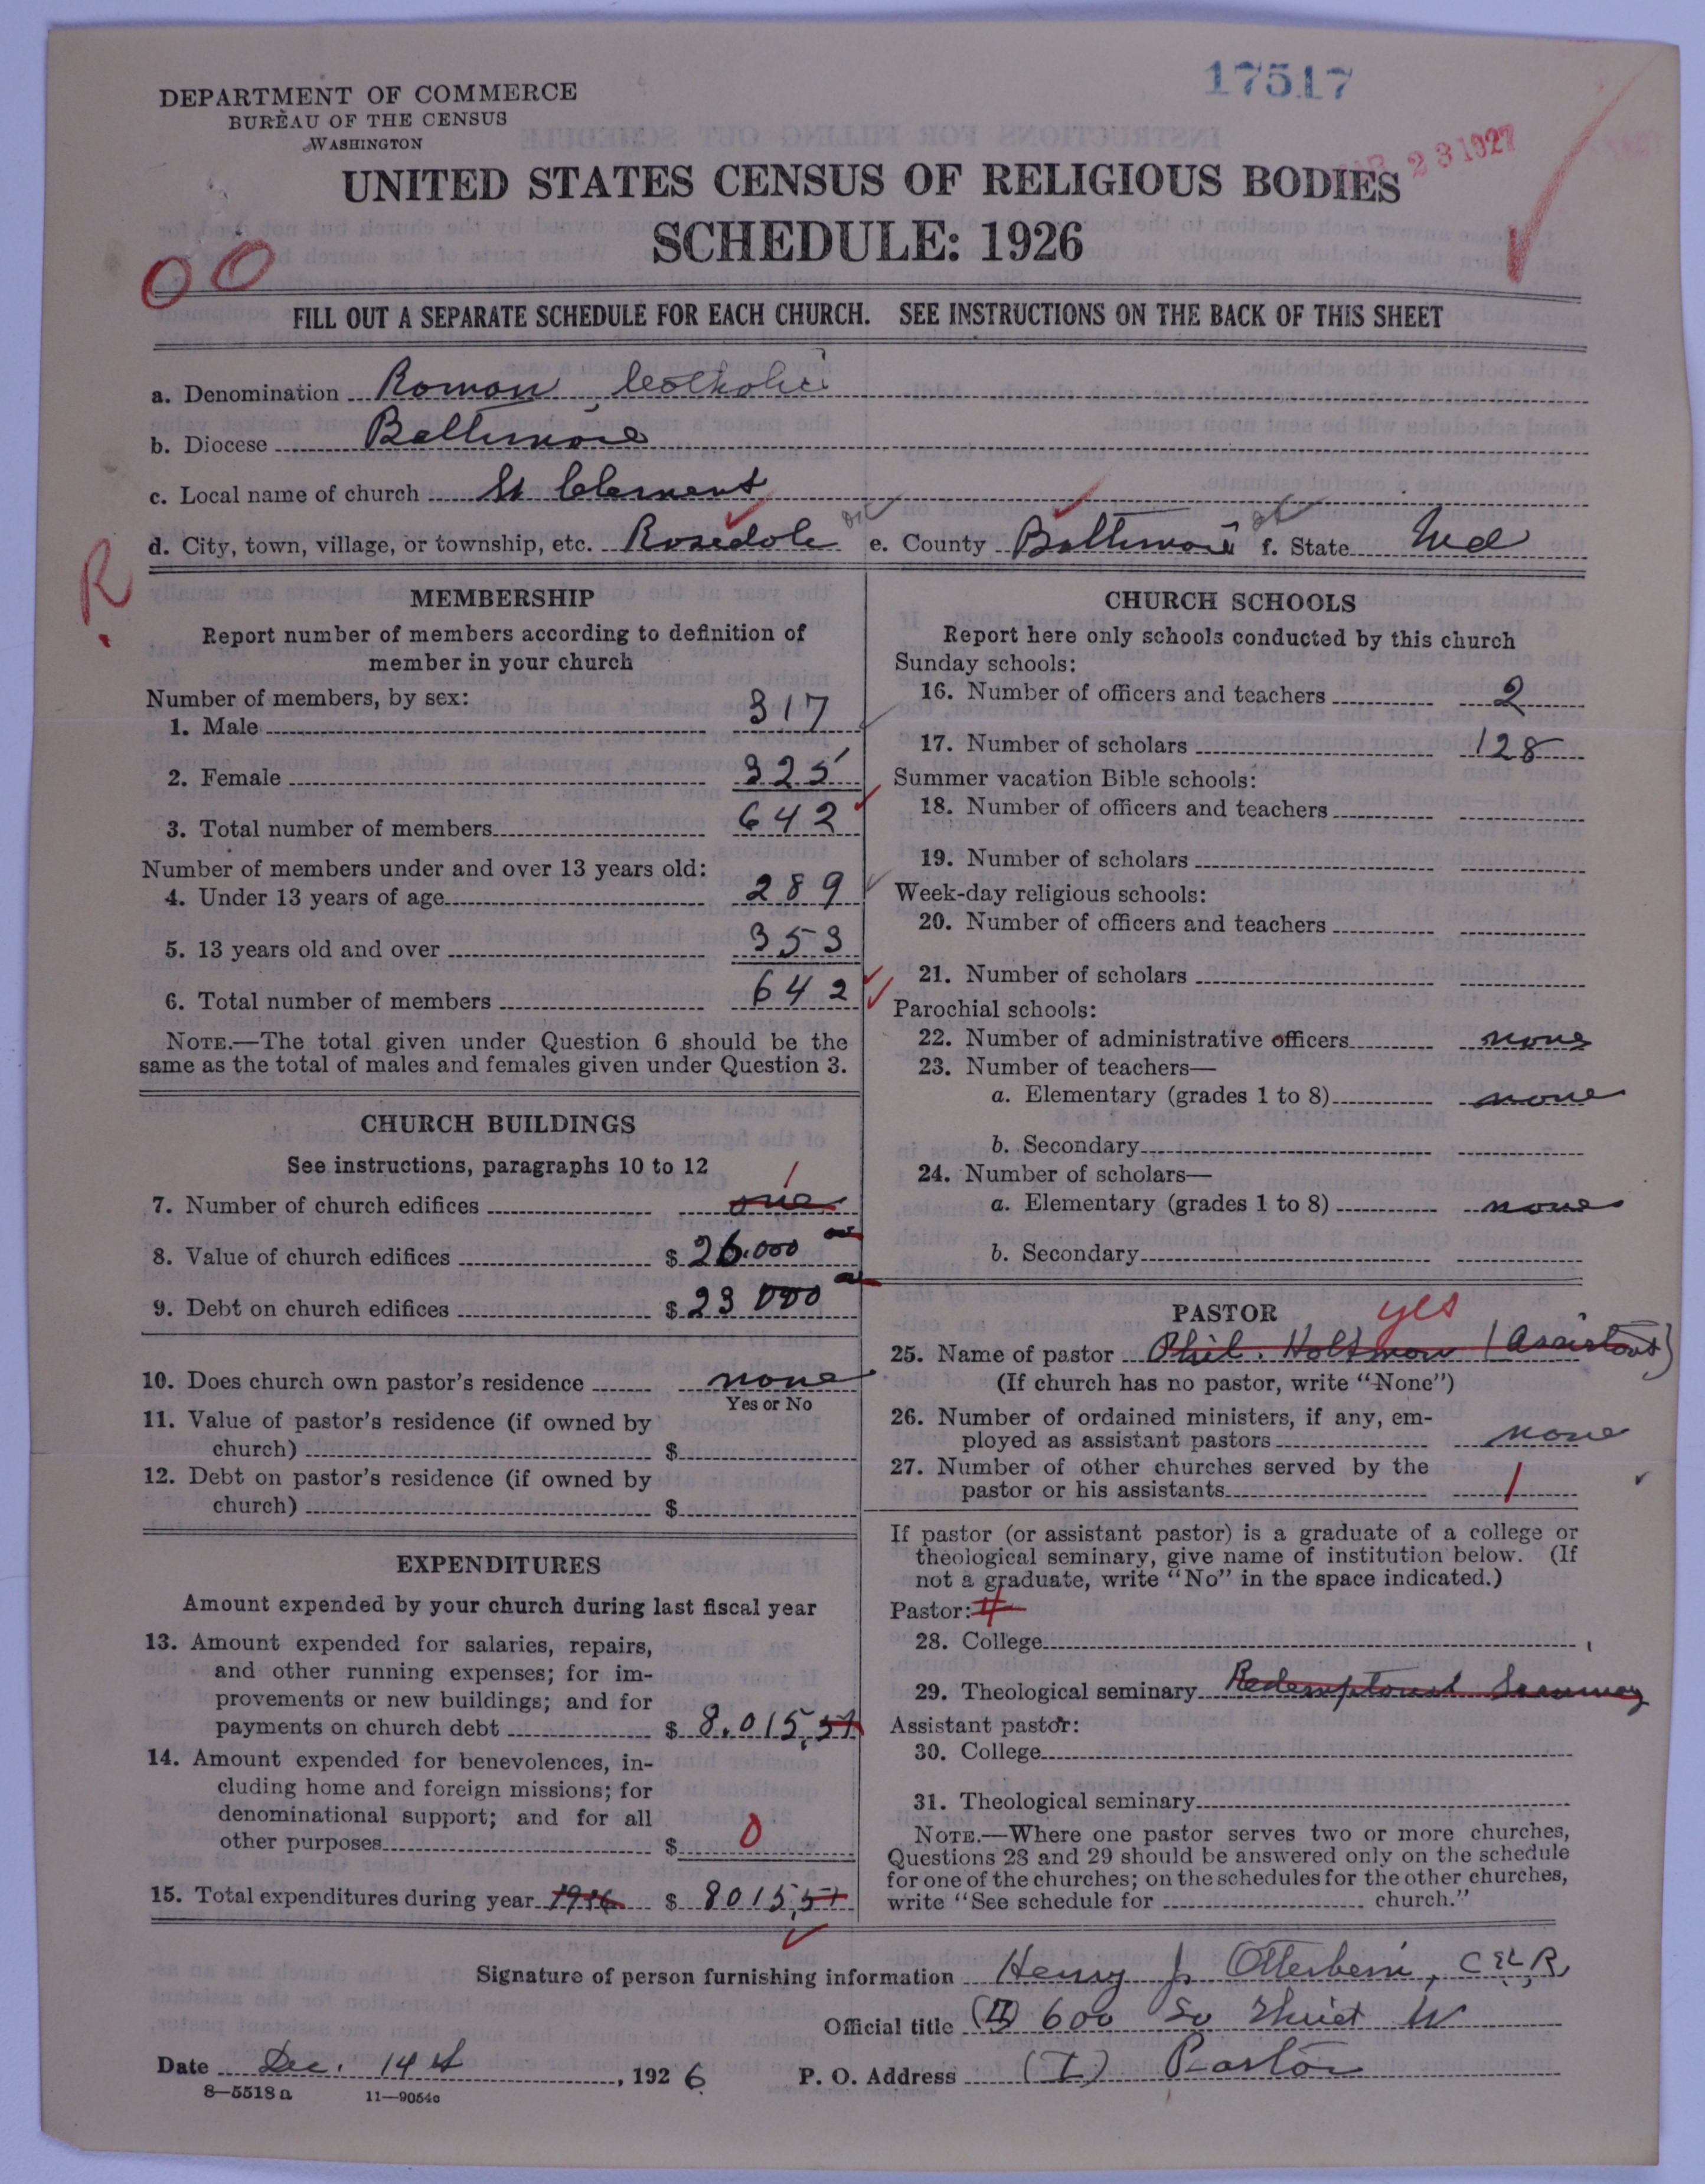 17517
DEPARTMENT OF COMMERCE
BUREAU OF THE CENSUS
WASHINGTON
23 1927
UNITED STATES CENSUS OF RELIGIOUS BODIES
SCHEDULE: 1926
00
FILL OUT A SEPARATE SCHEDULE FOR EACH CHURCH. SEE INSTRUCTIONS ON THE BACK OF THIS SHEET
a. Denomination Roman Catholic
b. Diocese Baltimore
c. Local name of church St Clement
d. City, town, village, or township, etc. Rosedale e. County Baltimore f. State Md
R
MEMBERSHIP
Report number of members according to definition of
member in your church
Number of members, by sex:
1. Male 317
2. Female 325
3. Total number of members 642
Number of members under and over 13 years old:
4. Under 13 years of age 289
5. 13 years old and over 353
6. Total number of members 642
NOTE.—The total given under Question 6 should be the
same as the total of males and females given under Question 3.
CHURCH BUILDINGS
See instructions, paragraphs 10 to 12
7. Number of church edifices one 1
8. Value of church edifices $ 26.000
9. Debt on church edifices $ 23 000
10. Does church own pastor's residence none
Yes or No
11. Value of pastor's residence (if owned by
church) $
12. Debt on pastor's residence (if owned by
church) $
EXPENDITURES
Amount expended by your church during last fiscal year
13. Amount expended for salaries, repairs,
and other running expenses; for im-
provements or new buildings; and for
payments on church debt $ 8.015,57
14. Amount expended for benevolences, in-
cluding home and foreign missions; for
denominational support; and for all
other purposes $ 0
15. Total expenditures during year 1926 $ 8015,57
CHURCH SCHOOLS
Report here only schools conducted by this church
Sunday schools:
16. Number of officers and teachers 2
17. Number of scholars 128
Summer vacation Bible schools:
18. Number of officers and teachers
19. Number of scholars
Week-day religious schools:
20. Number of officers and teachers
21. Number of scholars
Parochial schools:
22. Number of administrative officers none
23. Number of teachers—
a. Elementary (grades 1 to 8) none
b. Secondary
24. Number of scholars—
a. Elementary (grades 1 to 8) none
b. Secondary
PASTOR yes
25. Name of pastor Phil. Holtman (Assistant)
(If church has no pastor, write "None")
26. Number of ordained ministers, if any, em-
ployed as assistant pastors none
27. Number of other churches served by the
pastor or his assistants 1
If pastor (or assistant pastor) is a graduate of a college or
theological seminary, give name of institution below. (If
not a graduate, write "No" in the space indicated.)
Pastor:
28. College
29. Theological seminary Redemptorist Seminary
Assistant pastor:
30. College
31. Theological seminary
NOTE.—Where one pastor serves two or more churches,
Questions 28 and 29 should be answered only on the schedule
for one of the churches; on the schedules for the other churches,
write "See schedule for church."
Signature of person furnishing information Henry J. Otterbein, C.SS.R.
Official title (II) 600 So
Date Dec. 14th, 1926 P. O. Address (I) Pastor
8—5518a 11—9054a